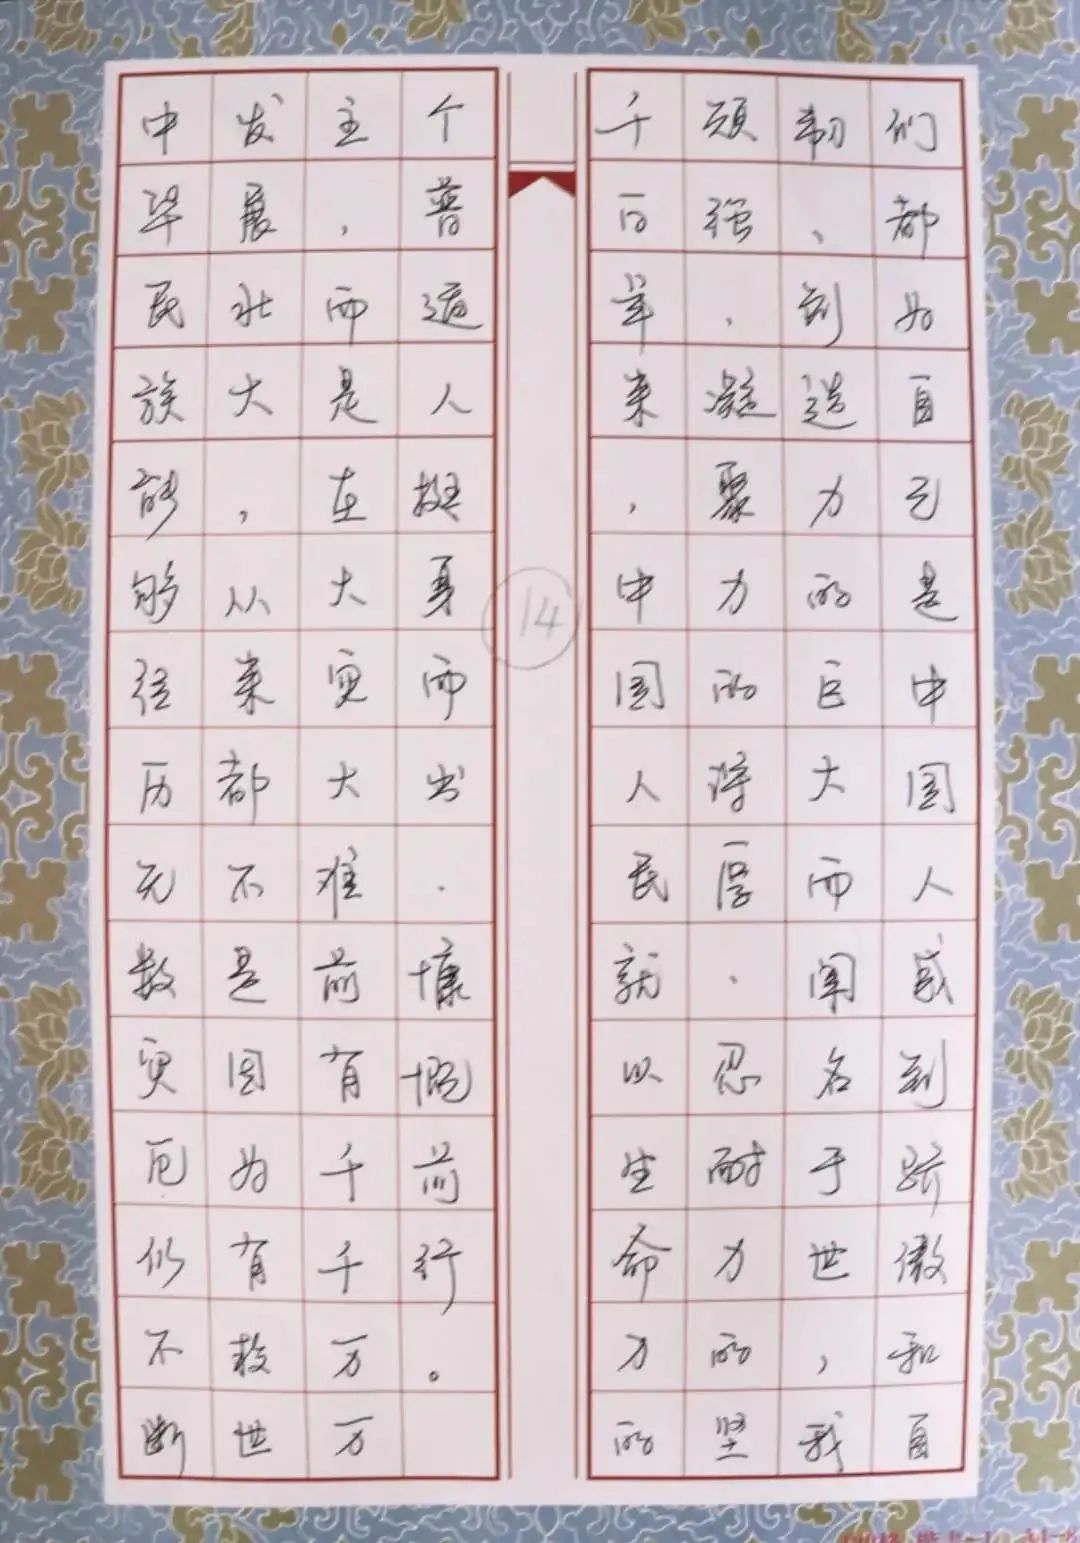 中华民族能够经历无数灾厄仍不断
发展壮大，从来都不是因为有救世
主，而是在大灾大难前有千千万万
个普通人挺身而出、慷慨前行。
14
千百年来，中国人民就以生命力的
顽强、凝聚力的深厚、忍耐力的坚
韧、创造力的巨大而闻名于世，我
们都为自己是中国人感到骄傲和自